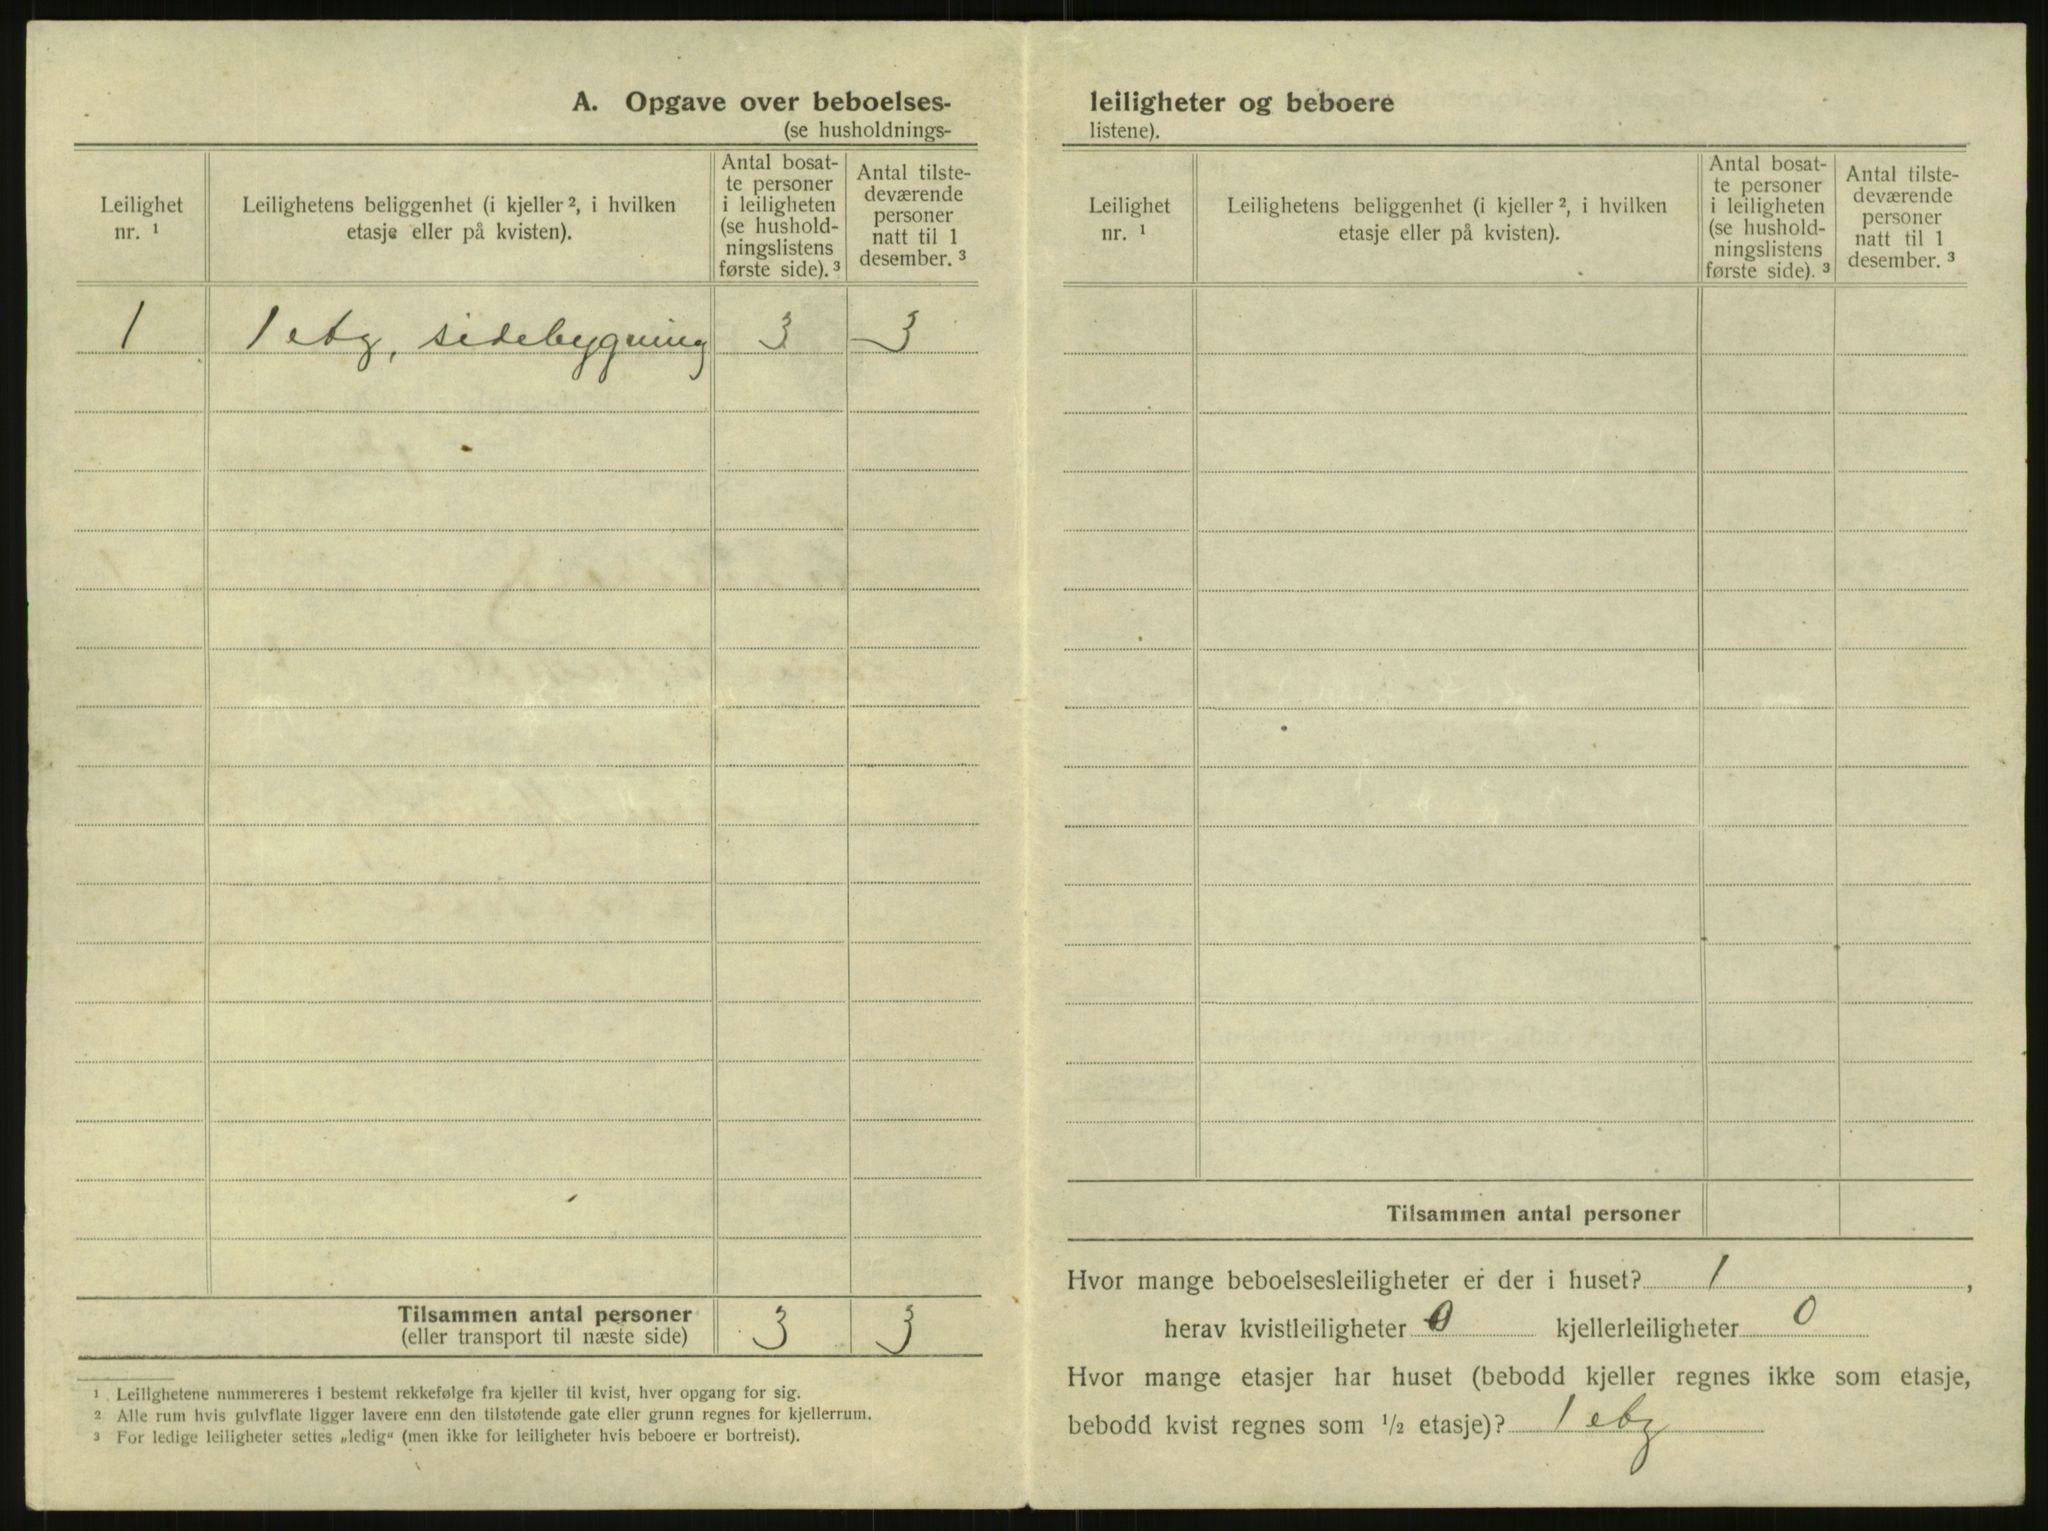 A. Opgave over beboelses-
(se husholdnings-
Leilighet
nr. ¹
Leilighetens beliggenhet (i kjeller ², i hvilken
etasje eller på kvisten).
Antal bosat-
te personer
i leiligheten
(se hushold-
ningslistens
første side). ³
Antal tilste-
deværende
personer
natt til 1
desember. ³
1 1 etg, sidebygning 3 3
Tilsammen antal personer
(eller transport til næste side)
3 3
¹ Leilighetene nummereres i bestemt rekkefølge fra kjeller til kvist, hver opgang for sig.
² Alle rum hvis gulvflate ligger lavere enn den tilstøtende gate eller grunn regnes for kjellerrum.
³ For ledige leiligheter settes „ledig“ (men ikke for leiligheter hvis beboere er bortreist).
leiligheter og beboere
listene).
Leilighet
nr. ¹
Leilighetens beliggenhet (i kjeller ², i hvilken
etasje eller på kvisten).
Antal bosat-
te personer
i leiligheten
(se hushold-
ningslistens
første side). ³
Antal tilste-
deværende
personer
natt til 1
desember. ³
Tilsammen antal personer
Hvor mange beboelsesleiligheter er der i huset? 1,
herav kvistleiligheter 0 kjellerleiligheter 0
Hvor mange etasjer har huset (bebodd kjeller regnes ikke som etasje,
bebodd kvist regnes som ½ etasje)? 1 etg